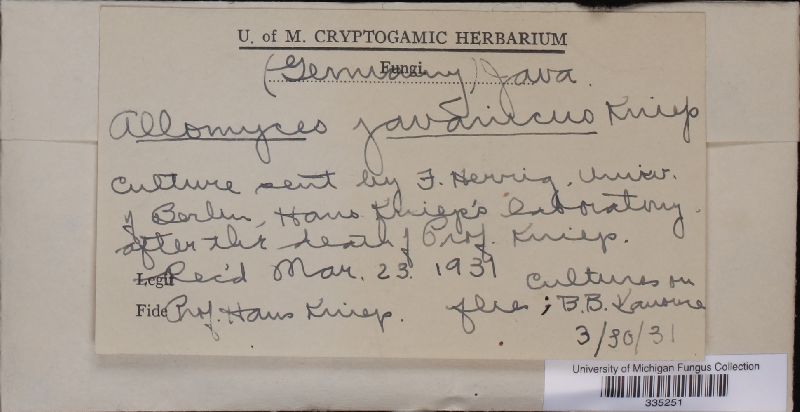 U. of M. CRYPTOGAMIC HERBARIUM
Fungi.
(Germany) Java.
Allomyces javanicus Kniep
culture sent by F. Herrig, Univ.
of Berlin, Hans Kniep's laboratory.
after the death of Prof. Kniep.
Legit Rec'd Mar. 23. 1931
cultures on
Fide Prof. Hans Kniep. flies; B.B. Kanouse
3/30/31
University of Michigan Fungus Collection
335251